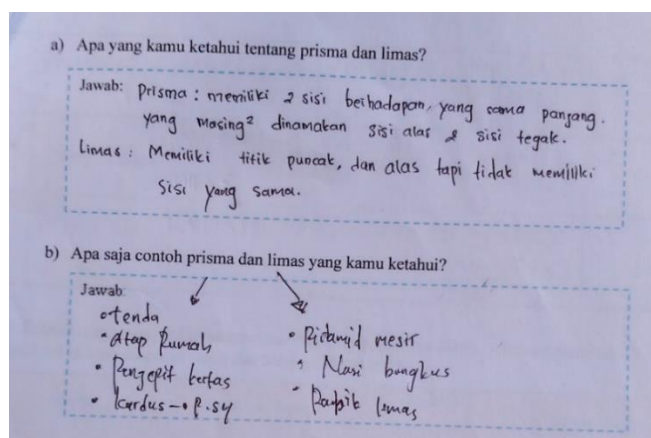 a) Apa yang kamu ketahui tentang prisma dan limas?
Jawab: Prisma : memiliki 2 sisi berhadapan, yang sama panjang.
yang masing² dinamakan sisi alas & sisi tegak.
Limas : Memiliki titik puncak, dan alas tapi tidak memiliki
sisi yang sama.
b) Apa saja contoh prisma dan limas yang kamu ketahui?
Jawab:
tenda
• atap Rumah
• Penjepit kertas
• kardus
• mesir
• Nasi bungkus
• limas